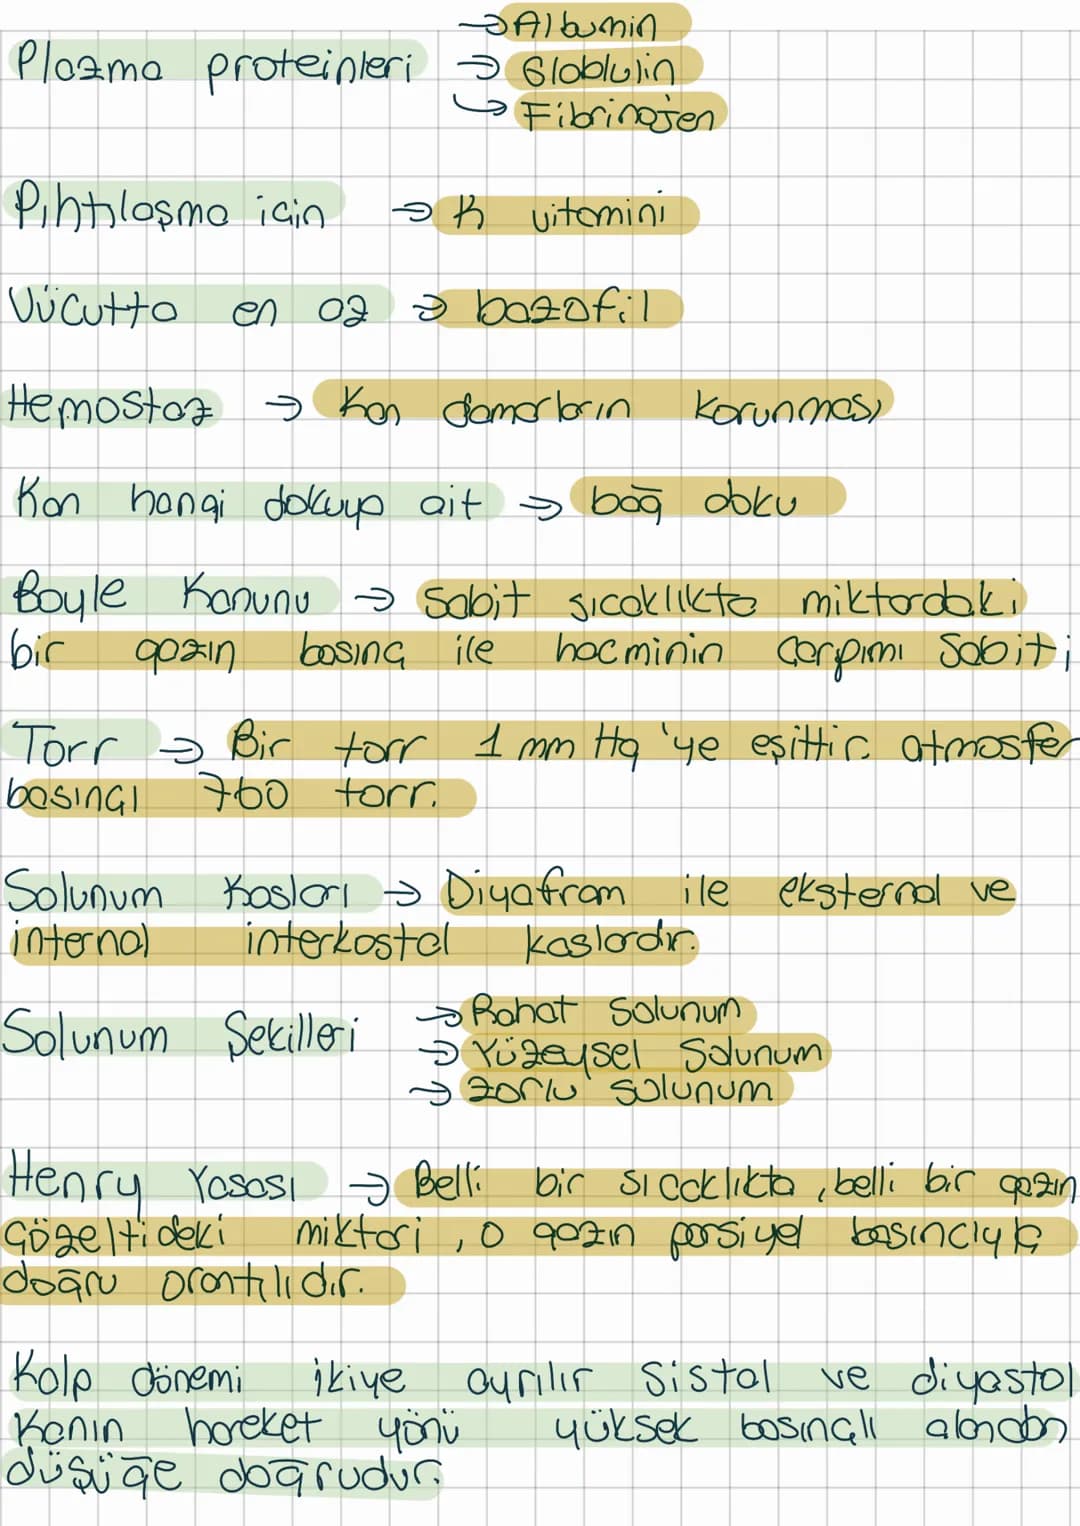 Plazma proteinleri → Albumin
→ Globlulin
→ Fibrinojen
Pıhtılaşma için → K vitamini
Vücutta en az → bazofil
Hemostaz → Kan damarların korunması
Kan hangi dokuya ait → bağ doku
Boyle Kanunu → Sabit sıcaklıkta miktardaki
bir gazın basınç ile hacminin çarpımı sabiti
Torr → Bir torr 1 mm Hg 'ye eşittir. atmosfer
basınçı 760 torr.
Solunum Kasları → Diyafram ile eksternal ve
internal interkostal kaslardır.
Solunum Şekilleri → Rahat Solunum
→ Yüzeysel Solunum
→ Zorlu solunum
Henry Yasası → Belli bir sıcaklıkta, belli bir gazın
çözeltideki miktarı, o gazın parsiyel basıncıyla
doğru orantılıdır.
Kalp dönemi ikiye ayrılır Sistal ve diyastol
Kanın hareket yönü yüksek basınçlı alandan
düşüğe doğrudur.